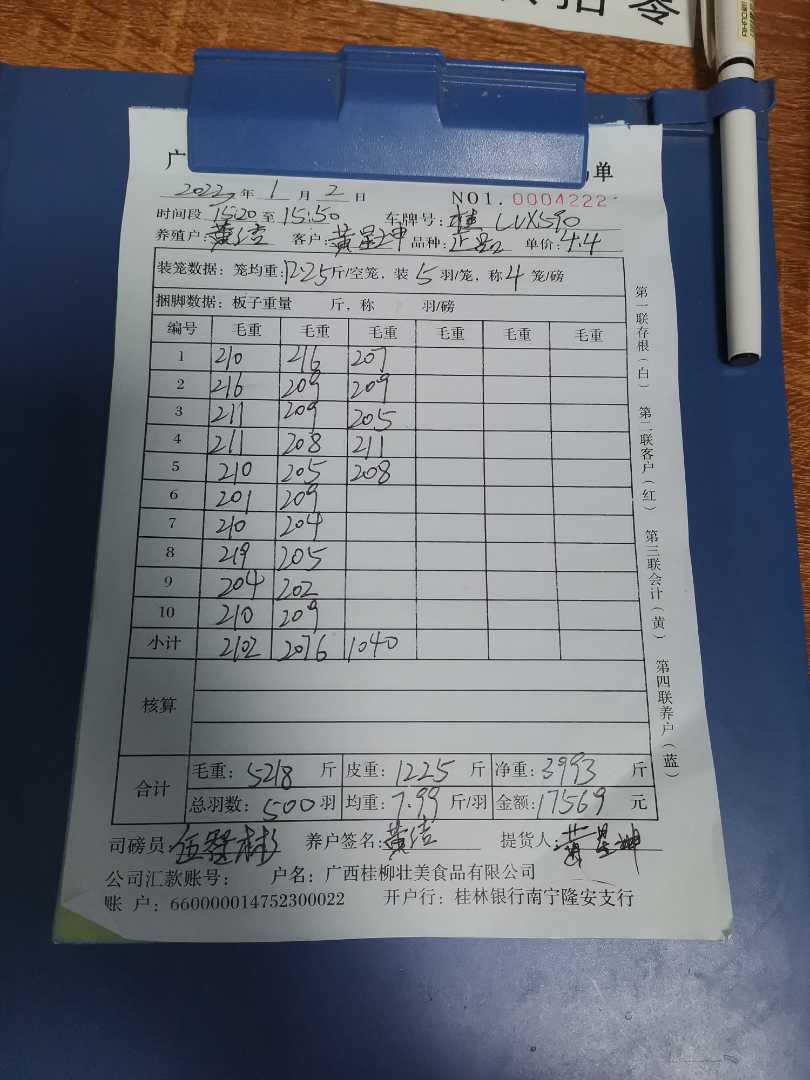 零
广 单
2022年 1 月 2 日 NO1. 0004222
时间段 15:20 至 15:50 车牌号: 桂 LVX590
养殖户: 黄洁 客户: 黄星坤 品种: 单价: 4.4
装笼数据: 笼均重: 12.25 斤/空笼, 装 5 羽/笼, 称 4 笼/磅
捆脚数据: 板子重量 斤, 称 羽/磅
编号 毛重 毛重 毛重 毛重 毛重 毛重
1 210 216 207
2 216 209 209
3 211 209 205
4 211 208 211
5 210 205 208
6 201 209
7 210 204
8 219 205
9 204 202
10 210 209
小计 2102 2076 1040
核算
合计 毛重: 5218 斤 皮重: 1225 斤 净重: 3993 斤
总羽数: 500 羽 均重: 7.99 斤/羽 金额: 17569 元
司磅员: 养户签名: 黄洁 提货人: 黄星坤
公司汇款账号: 户名: 广西桂柳壮美食品有限公司
账 户: 660000014752300022 开户行: 桂林银行南宁隆安支行
第一联存根(白) 第二联客户(红) 第三联会计(黄) 第四联养户(蓝)